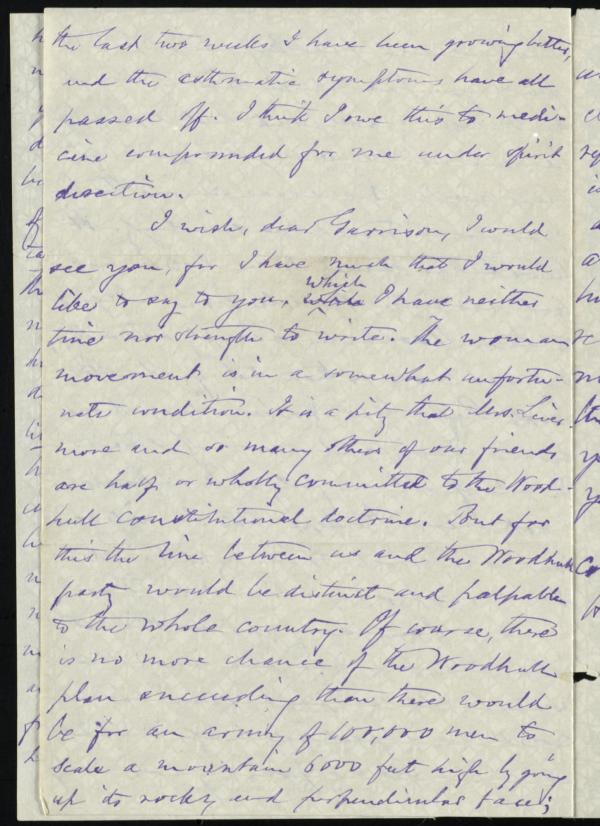 the last two weeks I have been growing better,
and the asthmatic symptoms have all
passed off. I think I owe this to medi-
cine compounded for me under spirit
direction.
I wish, dear Garrison, I could
see you, for I have much that I would
like to say to you, which I have neither
time nor strength to write. The woman
movement is in a somewhat unfortu-
nate condition. It is a pity that Mrs. Liver-
more and so many others of our friends
are half or wholly committed to the Wood-
hull constitutional doctrine. But for
this the line between us and the Woodhull
party would be distinct and palpable
to the whole country. Of course, there
is no more chance of the Woodhull
plan succeeding than there would
be for an army of 100,000 men to
scale a mountain 6000 feet high by going
up its rocky and perpendicular face;